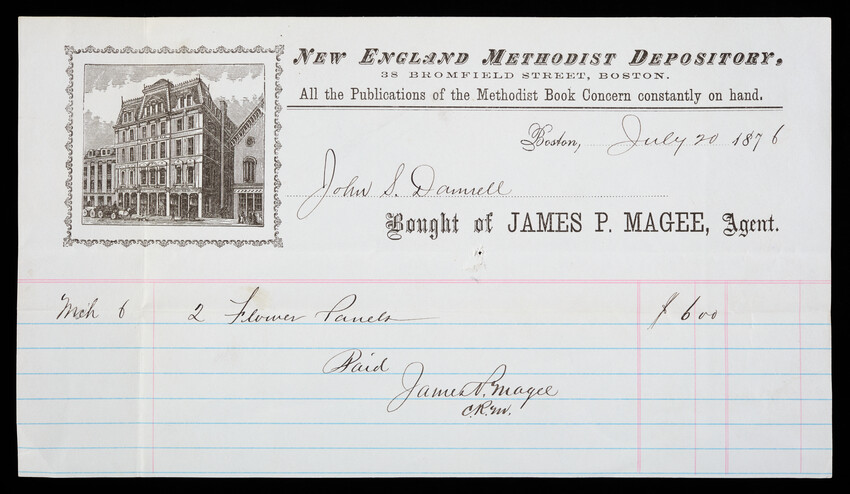 New England Methodist Depository,
38 BROMFIELD STREET, BOSTON.
All the Publications of the Methodist Book Concern constantly on hand.
Boston, July 20 1876
John S. Damrell
Bought of JAMES P. MAGEE, Agent.
Mch 6 2 Flower Panels $ 6 00
Paid
James P. Magee
C.R.M.